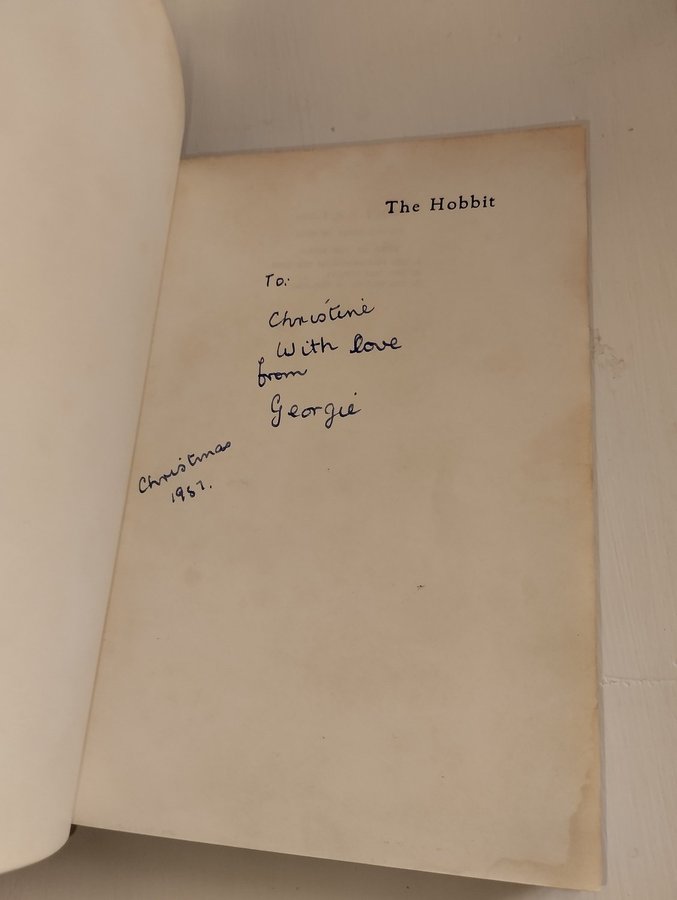 The Hobbit
To:
Christine
With love
from
Georgie
Christmas
1987.